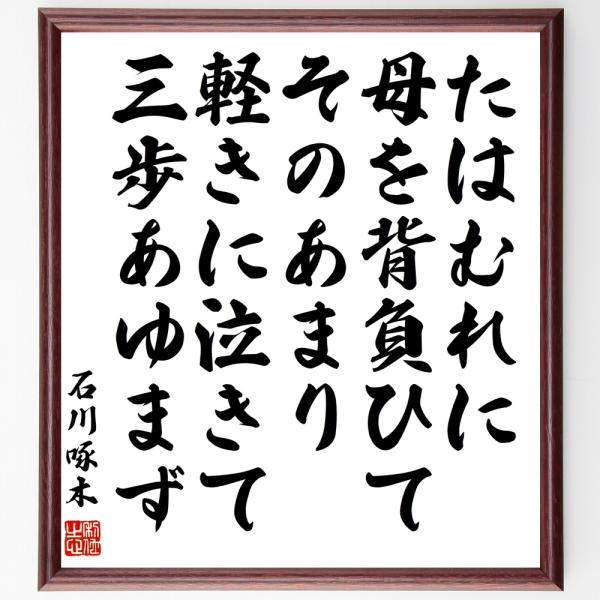 たはむれに
母を背負ひて
そのあまり
軽きに泣きて
三歩あゆまず
石川啄木